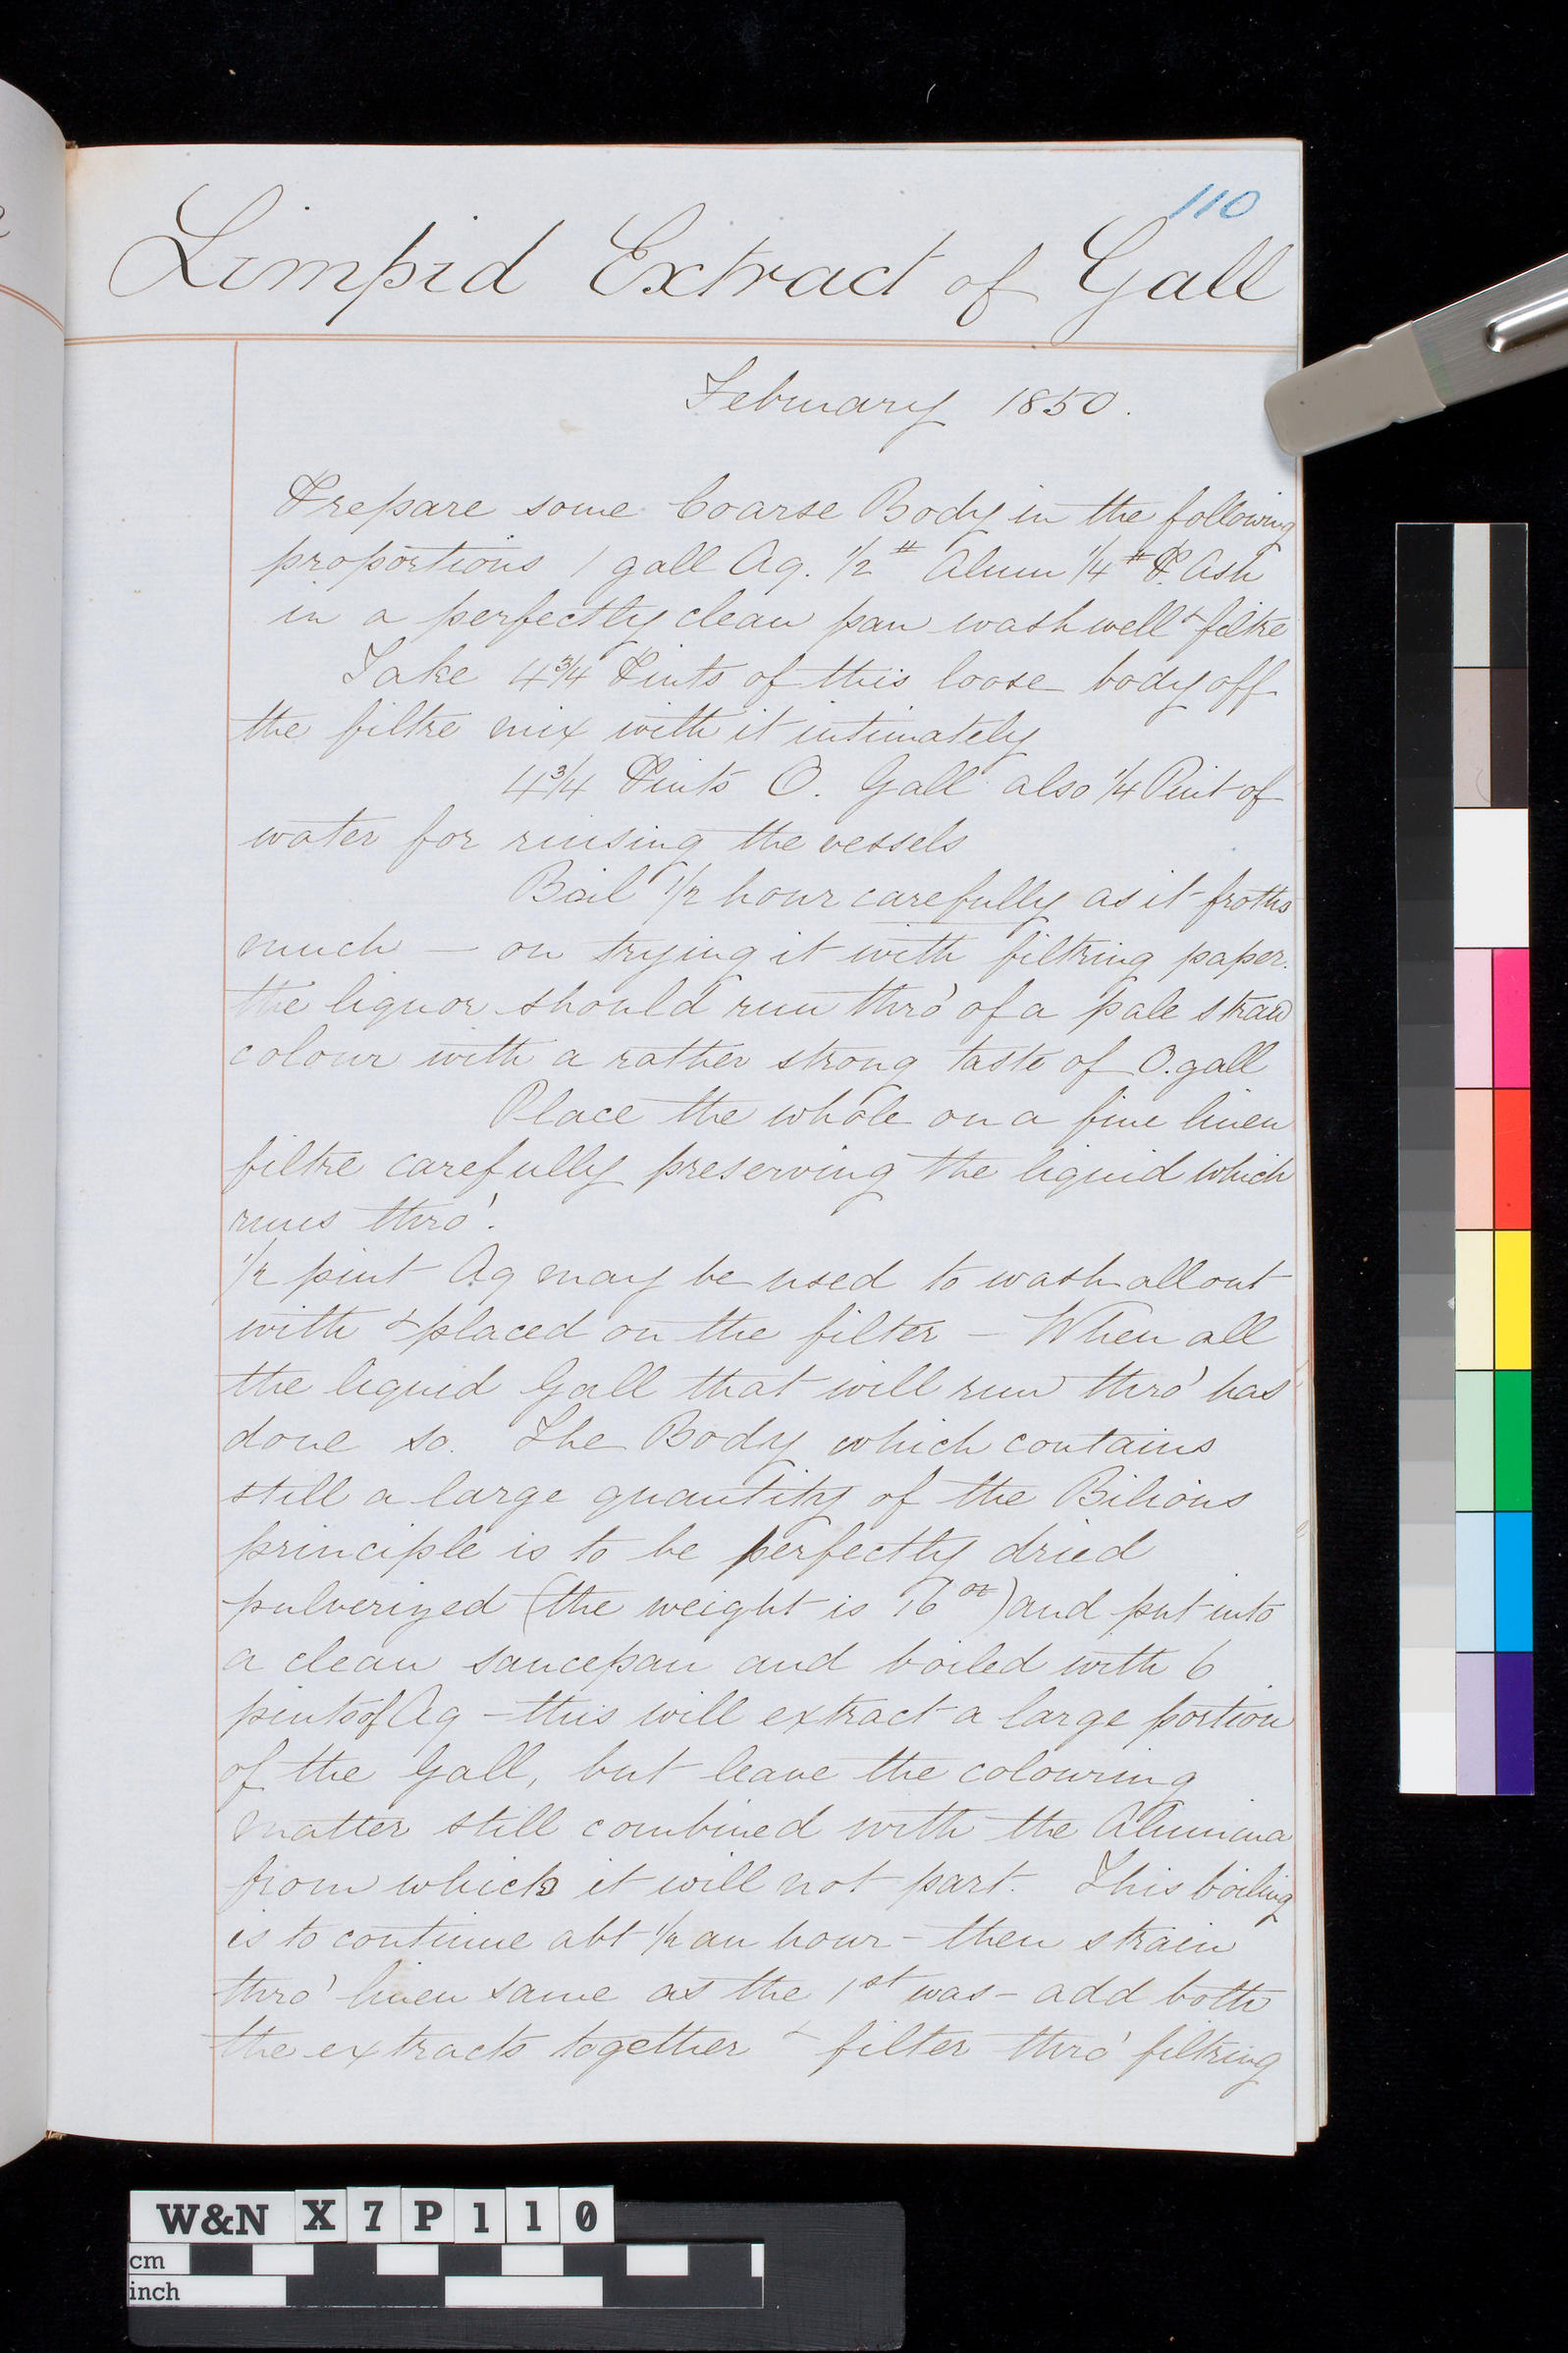 110
Limpid Extract of Gall
February 1850.
Prepare some Coarse Body in the following
proportions 1 gall Aq. 1/2 # Alum 1/4 # P. Ash
in a perfectly clean pan wash well & filtre
Take 4 3/4 Pints of this loose body off
the filtre mix with it intimately
4 3/4 Pints O. Gall also 1/4 Pint of
water for rinsing the vessels
Boil 1/2 hour carefully as it froths
much — on trying it with filtring paper.
the liquor should run thro' of a pale straw
colour with a rather strong taste of O. gall
Place the whole on a fine linen
filtre carefully preserving the liquid which
runs thro'.
1/2 pint Aq may be used to wash all out
with & placed on the filter — When all
the liquid Gall that will run thro' has
done so. The Body which contains
still a large quantity of the Bilious
principle is to be perfectly dried
pulverized (the weight is 16 oz) and put into
a clean saucepan and boiled with 6
pints of Aq — this will extract a large portion
of the Gall, but leave the colouring
matter still combined with the Alumina
from which it will not part. This boiling
is to continue abt 1/2 an hour — then strain
thro' linen same as the 1st was — add both
the extracts together & filter thro' filtring
W&N X7P110
cm
inch